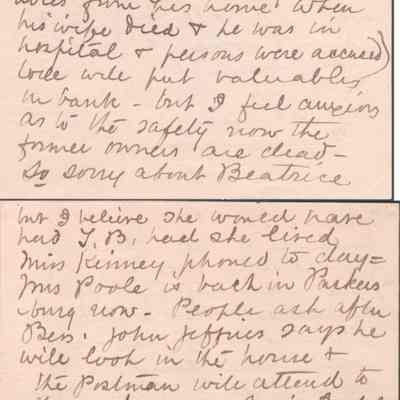 from his home when
his wife died & he was in
hospital & persons were accused)
we will put valuables
in bank - but I feel anxious
as to the safety now the
former owners are dead -
So sorry about Beatrice
but I believe she would have
had T.B. had she lived
Miss Kinney phoned to day =
Mrs Poole is back in Parkers
burg now - People ask after
Bess. John Jeffries says he
will look in the house &
the Postman will attend to